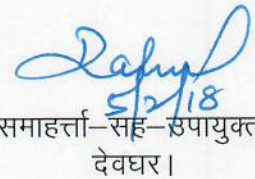 5/2/18
समाहर्त्ता–सह–उपायुक्त
देवघर।